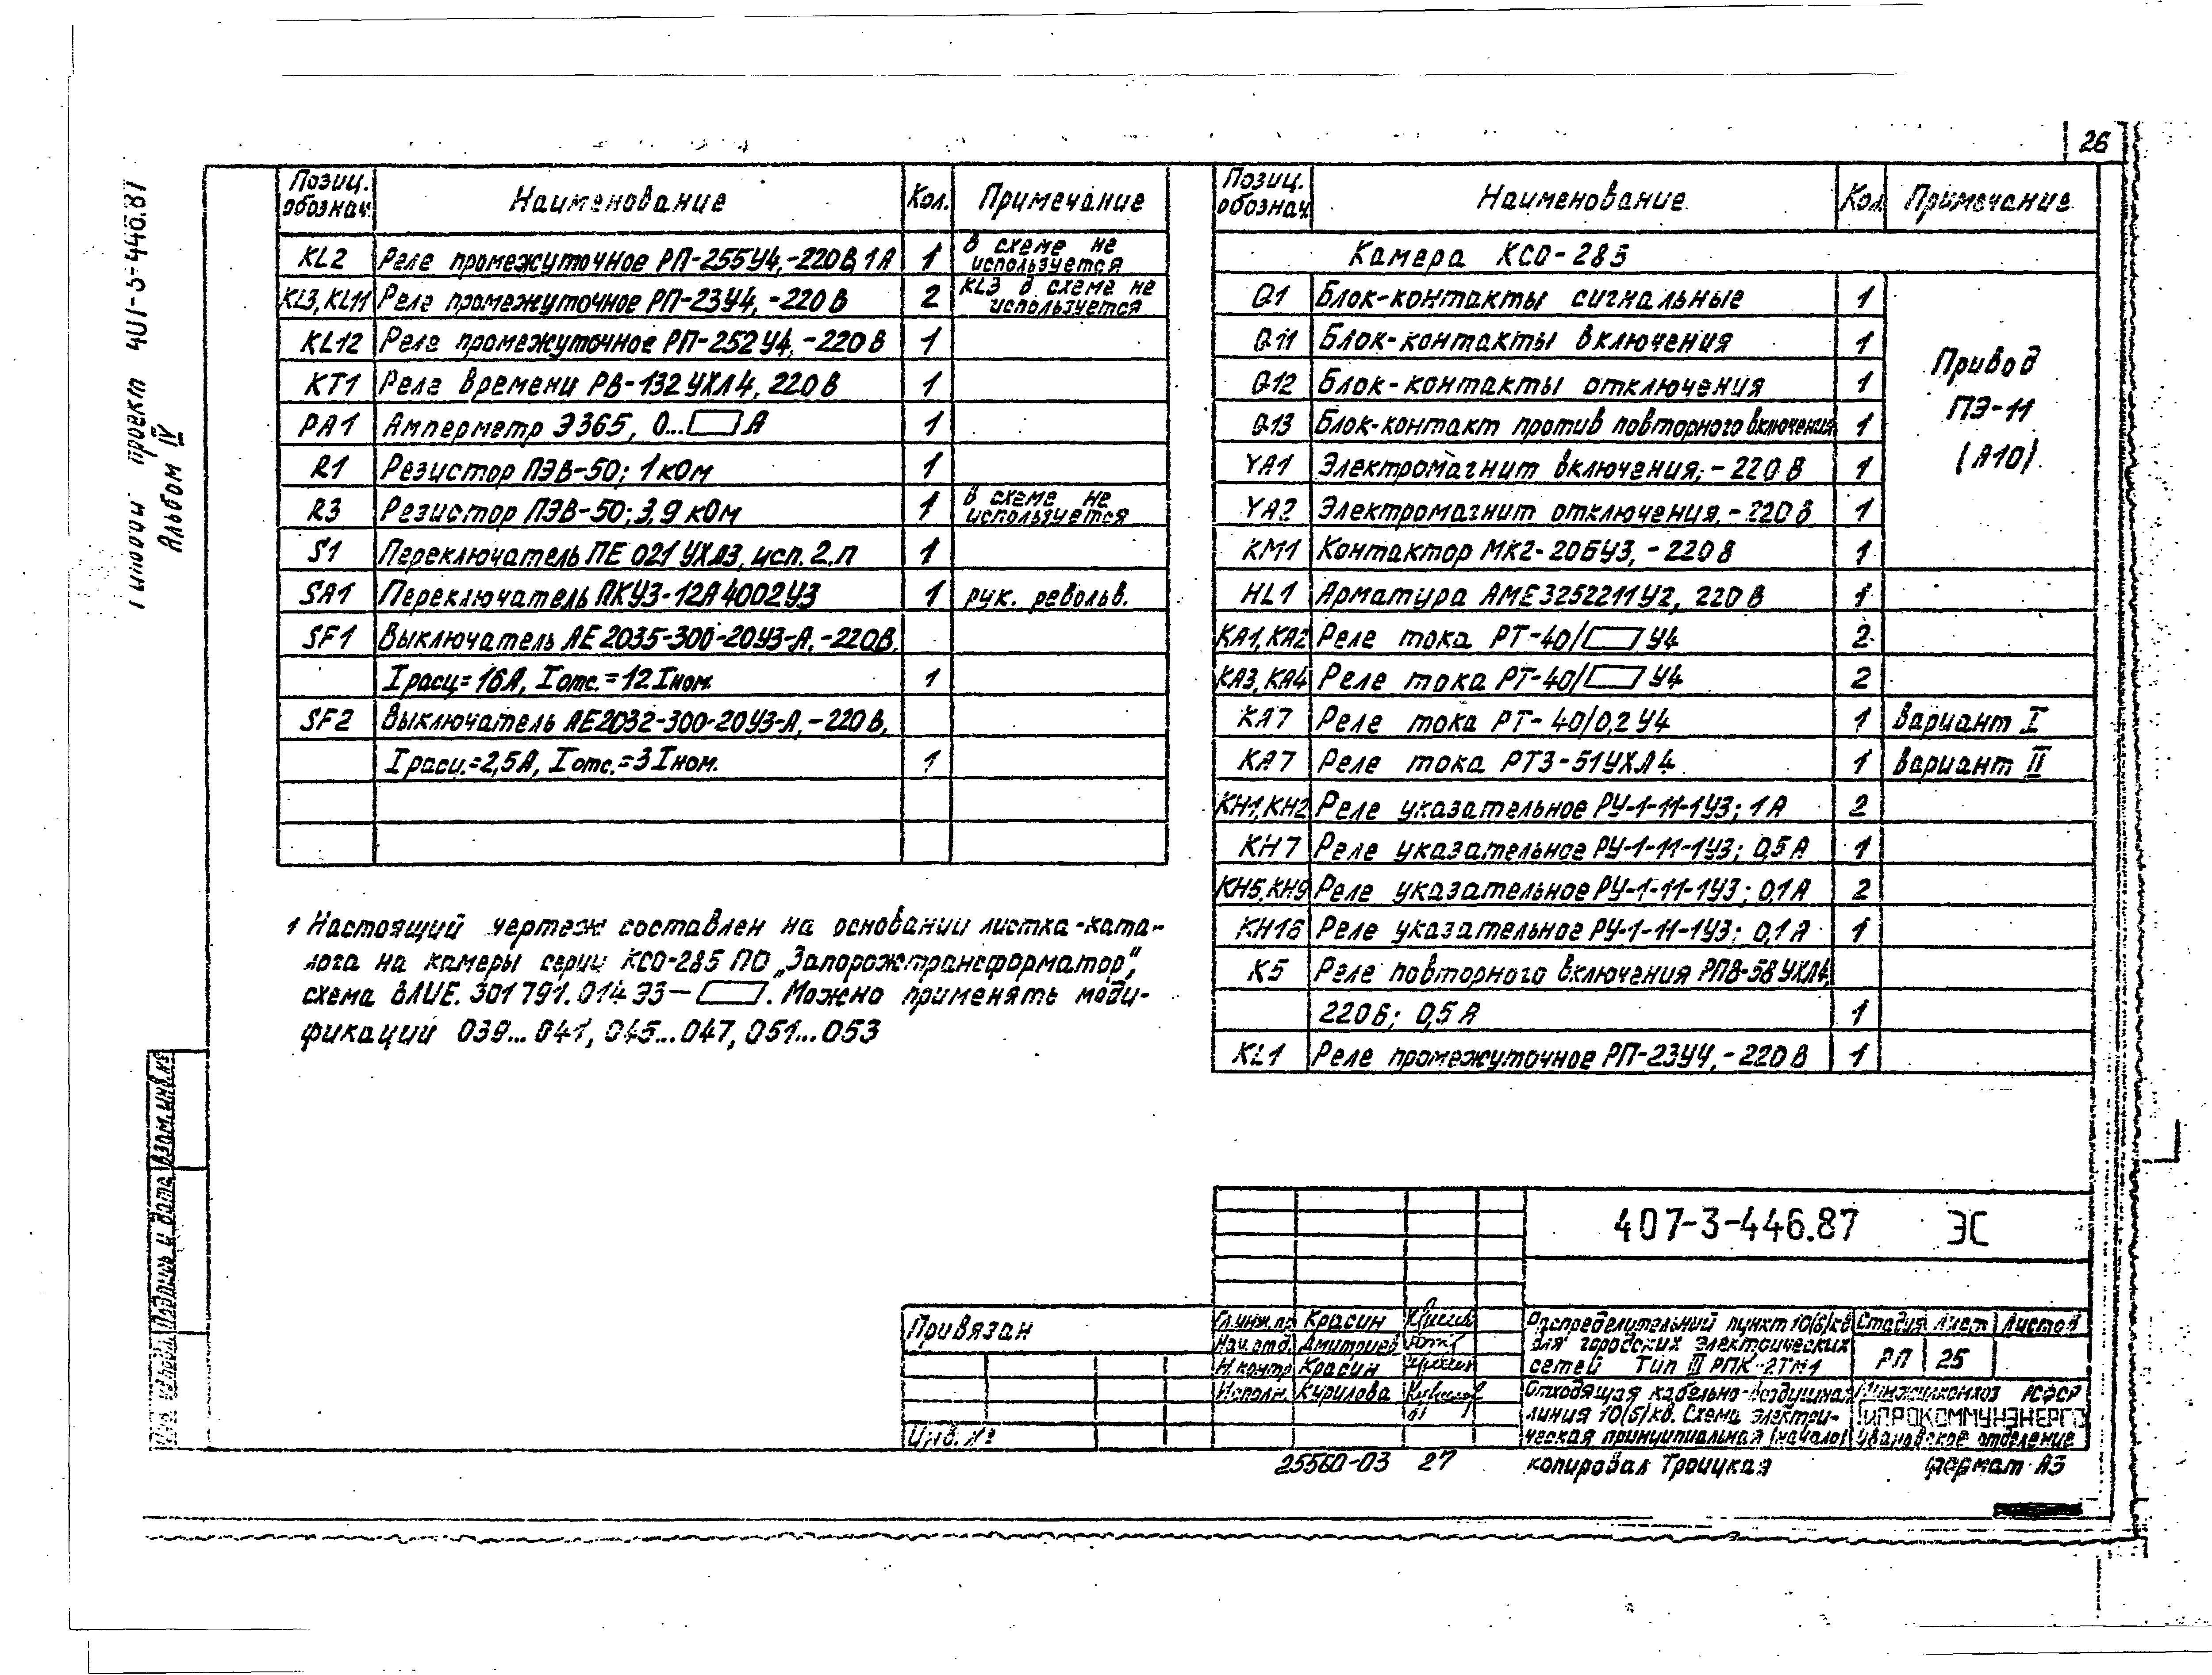 26
Типовой проект 401-5-446.87
Альбом IV
Позиц. обознач. Наименование Кол. Примечание
KL2 Реле промежуточное РП-255У4,-220В,1А 1 В схеме не используется
KL3, KL11 Реле промежуточное РП-23У4, -220В 2 KL3 в схеме не используется
KL12 Реле промежуточное РП-252У4, -220В 1
KT1 Реле времени РВ-132УХЛ4, 220В 1
PA1 Амперметр Э365, 0...▭А 1
R1 Резистор ПЭВ-50; 1 кОм 1
R3 Резистор ПЭВ-50; 3,9 кОм 1 В схеме не используется
S1 Переключатель ПЕ 021 УХЛ3, исп. 2.П 1
SA1 Переключатель ПКУ3-12А4002У3 1 рук. револьв.
SF1 Выключатель АЕ2035-300-20У3-А, -220В,
Iрасц.=16А, Iотс.=12Iном. 1
SF2 Выключатель АЕ2032-300-20У3-А, -220В,
Iрасц.=2,5А, Iотс.=3Iном. 1
1 Настоящий чертеж составлен на основании листка-ката-
лога на камеры серии КСО-285 ПО „Запорожтрансформатор",
схема ВЛИЕ.301791.014 Э3-▭. Можно применять моди-
фикаций 039...041, 045...047, 051...053
Позиц. обознач. Наименование Кол. Примечание
Камера КСО-285
Q1 Блок-контакты сигнальные 1
Q11 Блок-контакты включения 1
Q12 Блок-контакты отключения 1
Q13 Блок-контакт против повторного включения 1
YA1 Электромагнит включения; -220В 1
YA2 Электромагнит отключения, -220В 1
KM1 Контактор МК2-20БУ3, -220В 1
Привод
ПЭ-11
(А10)
HL1 Арматура АМЕ3252211У2, 220В 1
KA1, KA2 Реле тока РТ-40/▭ У4 2
KA3, KA4 Реле тока РТ-40/▭ У4 2
KA7 Реле тока РТ-40/0,2 У4 1 Вариант I
KA7 Реле тока РТЗ-51УХЛ4 1 Вариант II
KH1, KH2 Реле указательное РУ-1-11-1У3; 1А 2
KH7 Реле указательное РУ-1-11-1У3; 0,5А 1
KH5, KH9 Реле указательное РУ-1-11-1У3; 0,1А 2
KH16 Реле указательное РУ-1-11-1У3; 0,1А 1
K5 Реле повторного включения РПВ-58 УХЛ4,
220В; 0,5А 1
KL1 Реле промежуточное РП-23У4, -220В 1
Взам. инв. №
Подпись и дата
Инв. № подл.
407-3-446.87 ЭС
Привязан
Инв. №
Гл. инж. пр. Красин
Нач. отд. Дмитриев
Н. контр. Красин
Исполн. Курилова
Распределительный пункт 10(6)кВ
для городских электрических
сетей Тип III РПК-2ТМ1
Стадия Лист Листов
РП 25
Отходящая кабельно-воздушная
линия 10(6)кВ. Схема электри-
ческая принципиальная (начало)
Минжилкомхоз РСФСР
ГИПРОКОММУНЭНЕРГО
Ивановское отделение
25560-03 27 копировал Троицкая формат А3